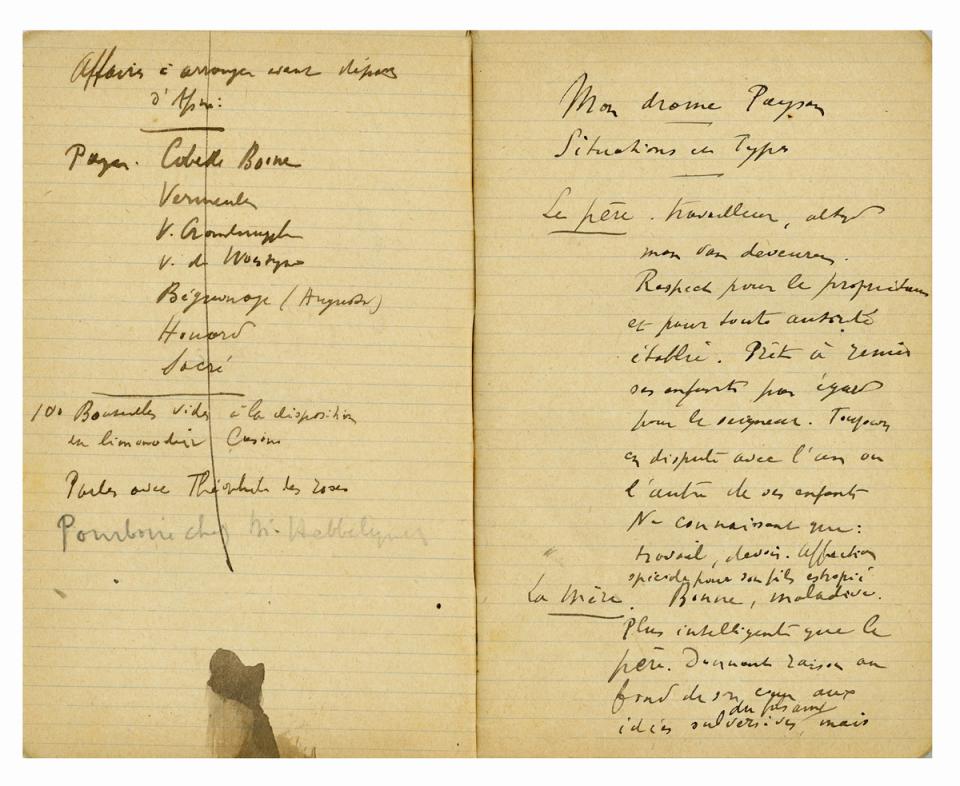 Affaires à arranger avant départ
d'Afsné:
Payer. Cubelle Boine
Vermeulen
V. Crombrugghe
V. de Woestyne
Béguinage (Augusta)
Honoré
Sacré
100 Bouteilles vides à la disposition
du limonadier Casino
Parler avec Théophile des roses
Pourboire chez Mr. Hebbelynck
Mon drame Paysan
Situations et Types
Le père. travailleur, altyd
mon van deveuren.
Respect pour le propriétaire
et pour toute autorité
établie. Prêt à renier
ses enfants par égard
pour le seigneur. Toujours
en dispute avec l'un ou
l'autre de ses enfants
Ne connaissant que:
travail, devoir. Affection
spéciale pour son fils estropié
La Mère. Bonne, maladive.
Plus intelligente que le
père. Donnant raison au
fond de son cœur aux
idées subversives du fils aîné, mais